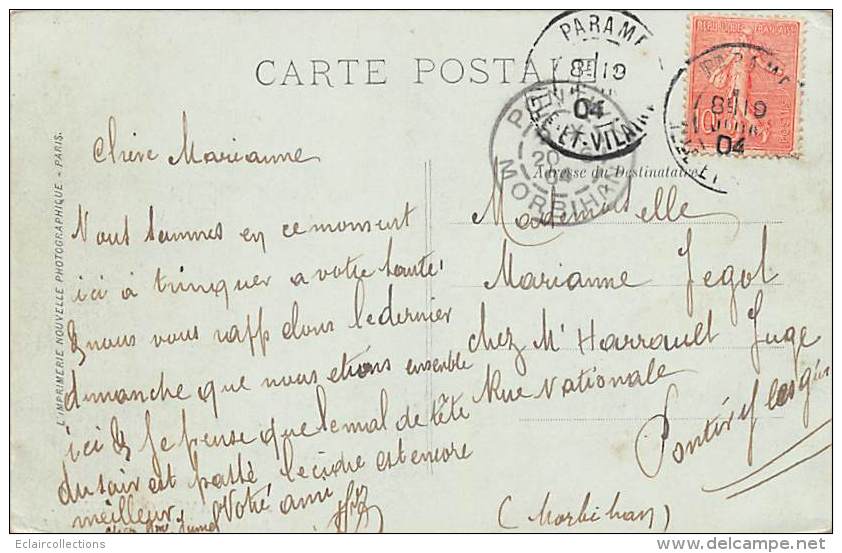 CARTE POSTALE
REPUBLIQUE FRANÇAISE
PARAME
8E 19
04
ILLE-ET-VILAINE
PARAME
8E 19
04
ILLE-ET
20
MORBIHAN
L'IMPRIMERIE NOUVELLE PHOTOGRAPHIQUE - PARIS.
Chère Marianne
Nous sommes en ce moment
ici à trinquer a votre santé
& nous vous rapp elons le dernier
dimanche que nous etions ensemble
ici & je pense que le mal de tête
du soir est passé le cidre est encore
meilleur. Votre ami
Adresse du Destinataire
Mademoiselle
Marianne Jegol
chez Mr Harrault Juge
Rue Nationale
Pontivy
(Morbihan)
Eclaircollections
http://eclaircollections.delcampe.net